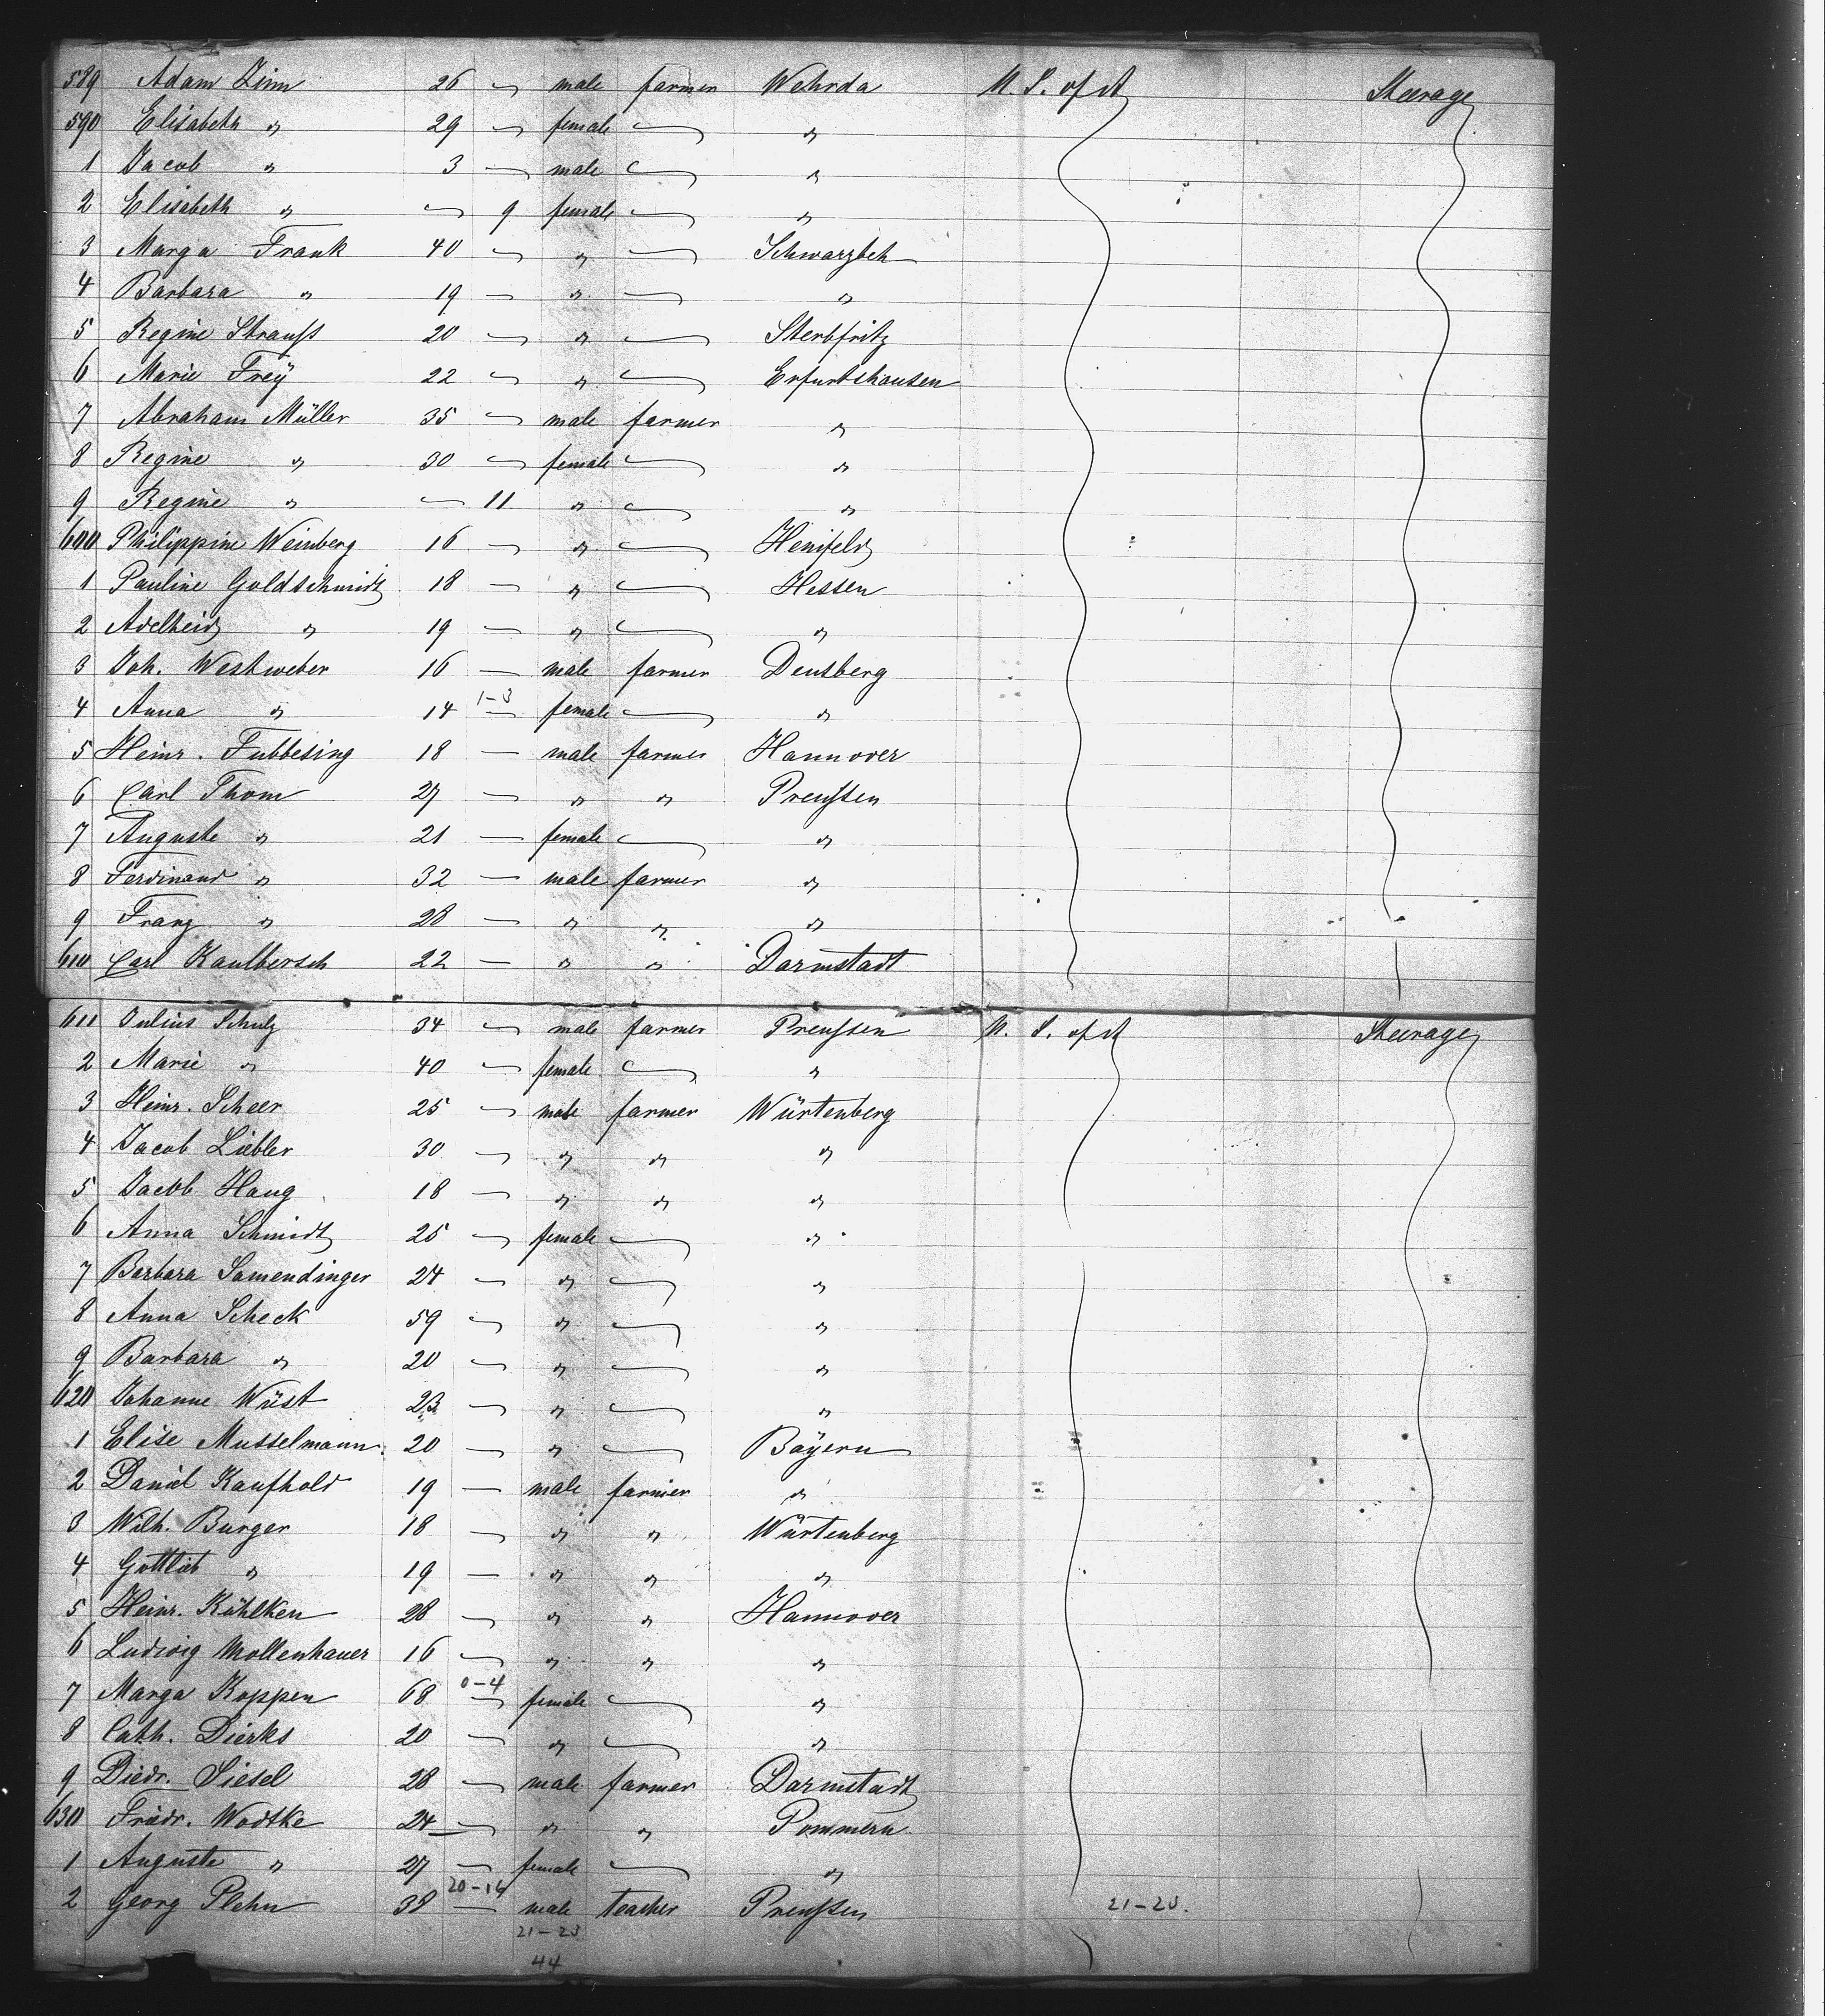 589 Adam Zinn 26 — male farmer Wehrda U. S. of A Steerage
590 Elisabeth " 29 — female — "
1 Jacob " 3 — male — "
2 Elisabeth " — 9 female — "
3 Marga Frank 40 — " — Schwarzbch
4 Barbara " 19 — " — "
5 Regine Strauß 20 — " — Sterbfritz
6 Marie Freÿ 22 — " — Erfurtshausen
7 Abraham Müller 35 — male farmer "
8 Regine " 30 — female — "
9 Regine " — 11 " — "
600 Philippine Weinberg 16 — " —
1 Pauline Goldschmidt 18 — " — Hessen
2 Adelheid " 19 — " — "
3 Joh. Westweber 16 — male farmer Densberg
4 Anna " 14 1-3 — female — "
5 Heinr. Fubbesing 18 — male farmer Hannover
6 Carl Thom 27 — " " Preußen
7 Auguste " 21 — female — "
8 Ferdinand " 32 — male farmer "
9 Franz " 28 — " " "
610 Carl Kaulbersch 22 — " " Darmstadt
611 Julius Schulz 34 — male farmer Preußen U. S. of A Steerage
2 Marie " 40 — female — "
3 Heinr. Scheer 25 — male farmer Würtenberg
4 Jacob Liebler 30 — " " "
5 Jacob Haug 18 — " " "
6 Anna Schmidt 25 — female — "
7 Barbara Samendinger 24 — " — "
8 Anna Scheck 59 — " — "
9 Barbara " 20 — " — "
620 Johanne Wüst 23 — " — "
1 Elise Musselmann 20 — " — Baÿern
2 Daniel Kaufhold 19 — male farmer "
3 Wilh. Burger 18 — " " Würtenberg
4 Gottlieb " 19 — " " "
5 Heinr. Köhlken 28 — " " Hannover
6 Ludwig Mollenhauer 16 — " " "
7 Marga Koppen 68 0-4 — female — "
8 Cath. Dierks 20 — " — "
9 Diedr. Siesel 28 — male farmer Darmstadt
630 Friedr. Wodtke 24 — " " Pommern
1 Auguste " 27 — female — "
2 Georg Plehn 38 20-16 — male teacher Preußen 21-23.
21-23
44